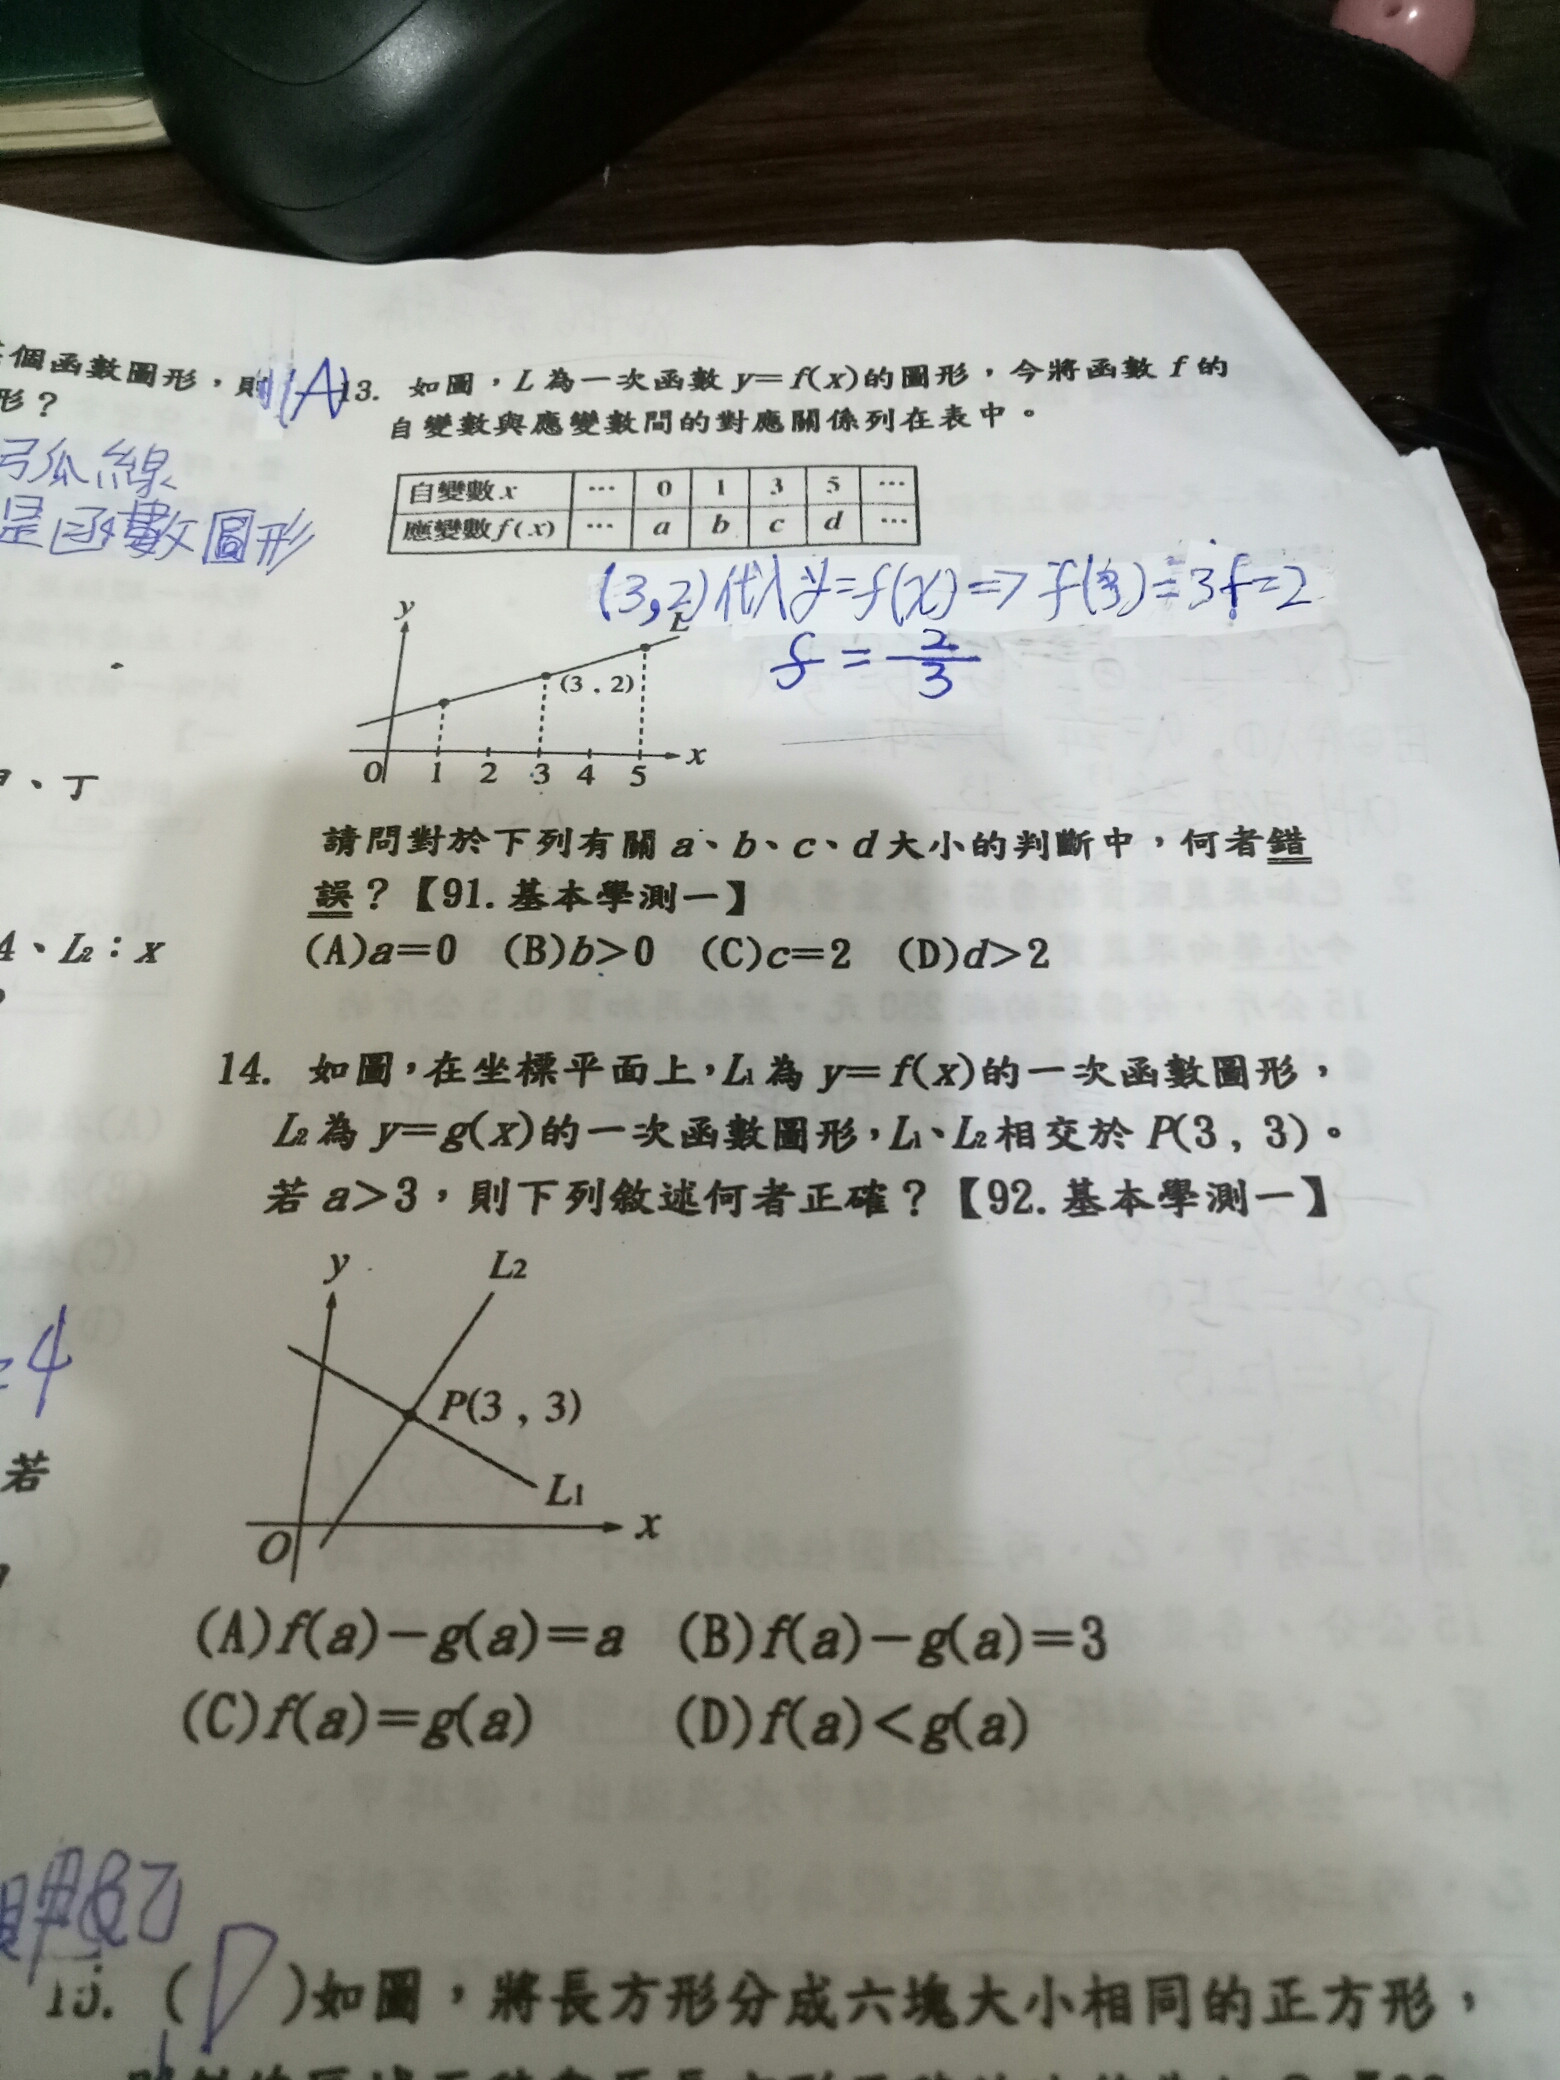 個函數圖形，則
形？
弧線
是函數圖形
、丁
4、L2：x
=4
若
(A)13. 如圖，L為一次函數 y=f(x)的圖形，今將函數 f 的
自變數與應變數間的對應關係列在表中。
自變數x … 0 1 3 5 …
應變數f(x) … a b c d …
(3,2)代入y=f(x)=>f(3)=3f=2
f=2/3
y
L
(3，2)
x
O 1 2 3 4 5
請問對於下列有關 a、b、c、d 大小的判斷中，何者錯
誤？【91.基本學測一】
(A)a=0 (B)b>0 (C)c=2 (D)d>2
14. 如圖，在坐標平面上，L1為 y=f(x)的一次函數圖形，
L2為 y=g(x)的一次函數圖形，L1、L2相交於 P(3，3)。
若 a>3，則下列敘述何者正確？【92.基本學測一】
y
L2
P(3，3)
L1
x
O
(A)f(a)-g(a)=a (B)f(a)-g(a)=3
(C)f(a)=g(a) (D)f(a)<g(a)
15. (D)如圖，將長方形分成六塊大小相同的正方形，